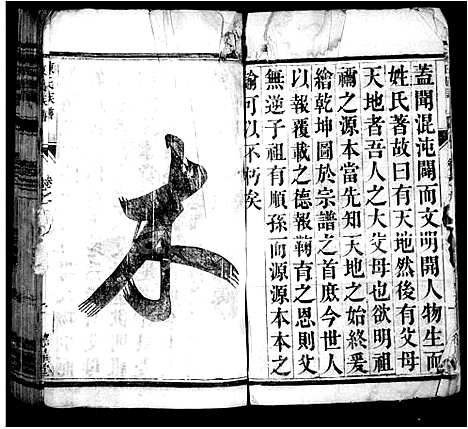 蓋聞混沌闢而文明開人物生而
姓氏著故曰有天地然後有父母
天地者吾人之大父母也欲明祖
禰之源本當先知天地之始終爰
繪乾坤圖於宗譜之首庶今世人
以報覆載之德報鞠育之恩則父
無逆子祖有順孫而源源本本之
論可以不朽矣
木
陳氏族譜
卷之一